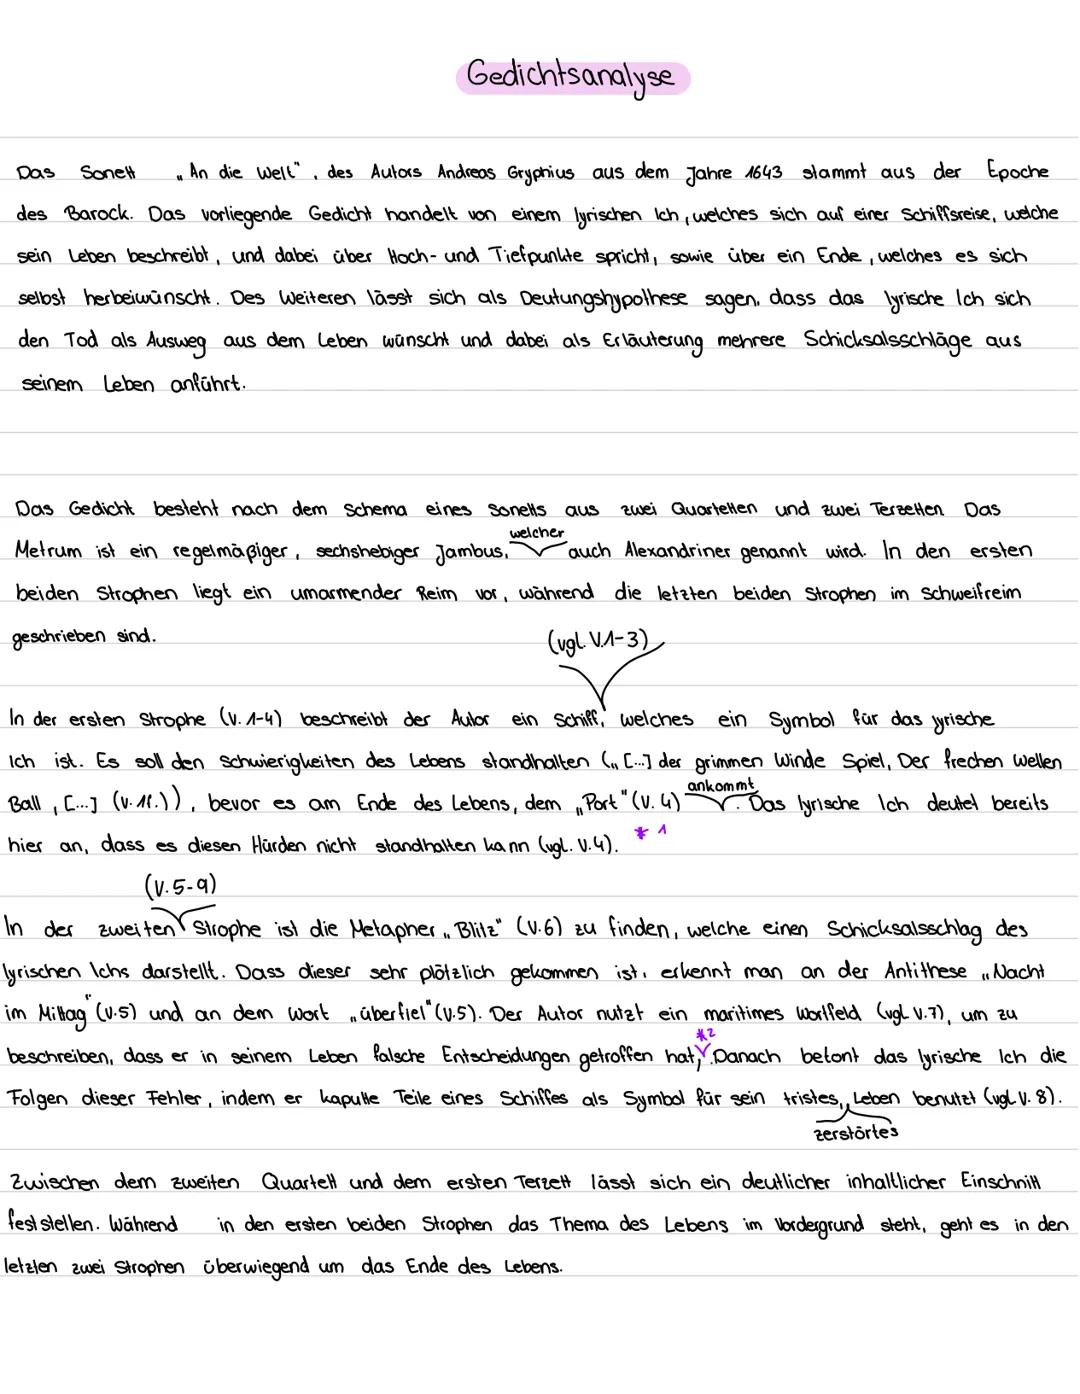 Gedichtsanalyse
Das Sonett „An die Welt", des Autors Andreas Gryphius aus dem Jahre 1643 stammt aus der Epoche
des Barock. Das vorliegende Gedicht handelt von einem lyrischen Ich, welches sich auf einer Schiffsreise, welche
sein Leben beschreibt, und dabei über Hoch- und Tiefpunkte spricht, sowie über ein Ende, welches es sich
selbst herbeiwünscht. Des Weiteren lässt sich als Deutungshypothese sagen, dass das lyrische Ich sich
den Tod als Ausweg aus dem Leben wünscht und dabei als Erläuterung mehrere Schicksalsschläge aus
seinem Leben anführt.
Das Gedicht besteht nach dem Schema eines Sonetts aus zwei Quartetten und zwei Terzetten. Das
welcher
Metrum ist ein regelmäßiger, sechshebiger Jambus, auch Alexandriner genannt wird. In den ersten
beiden Strophen liegt ein umarmender Reim vor, während die letzten beiden Strophen im Schweifreim
geschrieben sind.
(vgl. V.1-3)
In der ersten Strophe (V. 1-4) beschreibt der Autor ein Schiff, welches ein Symbol für das yrische
Ich ist. Es soll den Schwierigkeiten des Lebens standhalten („[...] der grimmen Winde Spiel, Der frechen Wellen
Ball, [...] (V. 1f.)), bevor es am Ende des Lebens, dem „Port" (V. 4) . Das lyrische Ich deutet bereits
ankommt
hier an, dass es diesen Hürden nicht standhalten kann (vgl. V.4). * 1
(V. 5-9)
In der zweiten Strophe ist die Metapher „Blitz" (V.6) zu finden, welche einen Schicksalsschlag des
lyrischen Ichs darstellt. Dass dieser sehr plötzlich gekommen ist, erkennt man an der Antithese „Nacht
im Mittag" (V.5) und an dem Wort „überfiel" (V.5). Der Autor nutzt ein maritimes Wortfeld (vgl. V.7), um zu
*2
beschreiben, dass er in seinem Leben falsche Entscheidungen getroffen hat, . Danach betont das lyrische Ich die
Folgen dieser Fehler, indem er kaputte Teile eines Schiffes als Symbol für sein tristes, Leben benutzt (vgl. V. 8).
zerstörtes
Zwischen dem zweiten Quartett und dem ersten Terzett lässt sich ein deutlicher inhaltlicher Einschnitt
feststellen. Während in den ersten beiden Strophen das Thema des Lebens im Vordergrund steht, geht es in den
letzten zwei Strophen überwiegend um das Ende des Lebens.